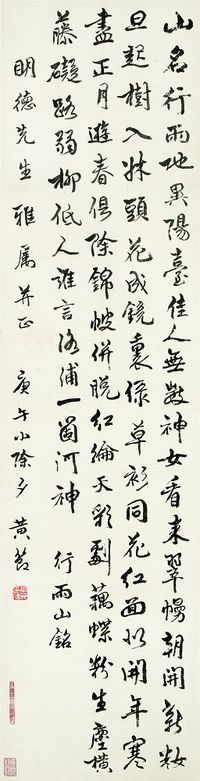 山名行雨地異陽臺佳人無數神女看來翠幔朝開新粧
旦起樹入牀頭花成鏡裏綠草衫同花紅面似開年寒
盡正月遊春俱除錦帔併脫紅綸天劇藕蝶粉生塵橫
藤礙路弱柳低人誰言洛浦一箇河神 行雨山銘
明德先生 雅屬并正 庚午小除夕 黃節